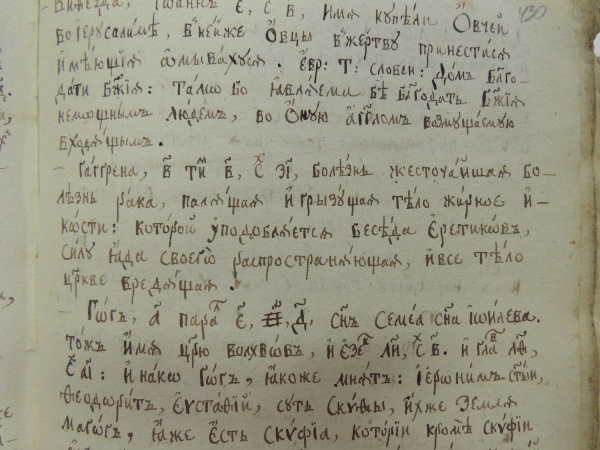 430
Виѳезда, Іѡаннъ є҃, с҃ в҃, имя купѣли Ѻвчей
во іерусалимѣ, в нейже Ѻвцы в жертву принестися
имѣющїя ѡмывахуся. євр: т: словен: Домъ благо-
дати Бж҃їя: тамѡ бо ꙗвляема бѣ бл҃годать Бж҃їя
немощнымъ людемъ, во Ѻную а҆гг҃ломъ возмущаемую
входящымъ.
– Гаггрена, в҃ тим в҃, с҃ з҃і, болѣзнь жесточайшая бо-
лѣзнь рака, палящая и грызущая тѣло жирное и
кѡсти: которой уподобляется бесѣда Єретикѡвъ,
силу ꙗда своегѡ распространяющая, и все тѣло
цр҃кве вредящая.
– Гѡгъ, а҃ парал є҃, д҃, сн҃ъ Семеа сн҃а іѡилева.
тожъ имя цр҃ю волхвѡвъ, и єзек л҃и, с҃ в҃. и глав л҃ѳ,
с҃ а҃і: инакѡ Гѡгъ, ꙗкоже мнятъ: іерѡнимъ ст҃ый,
Ѳеодоритъ, Єустаѳїй, суть скуѳы, ихже земля
Магѡгъ, ꙗже єсть скуѳїа, которїи кромѣ скуѳїи